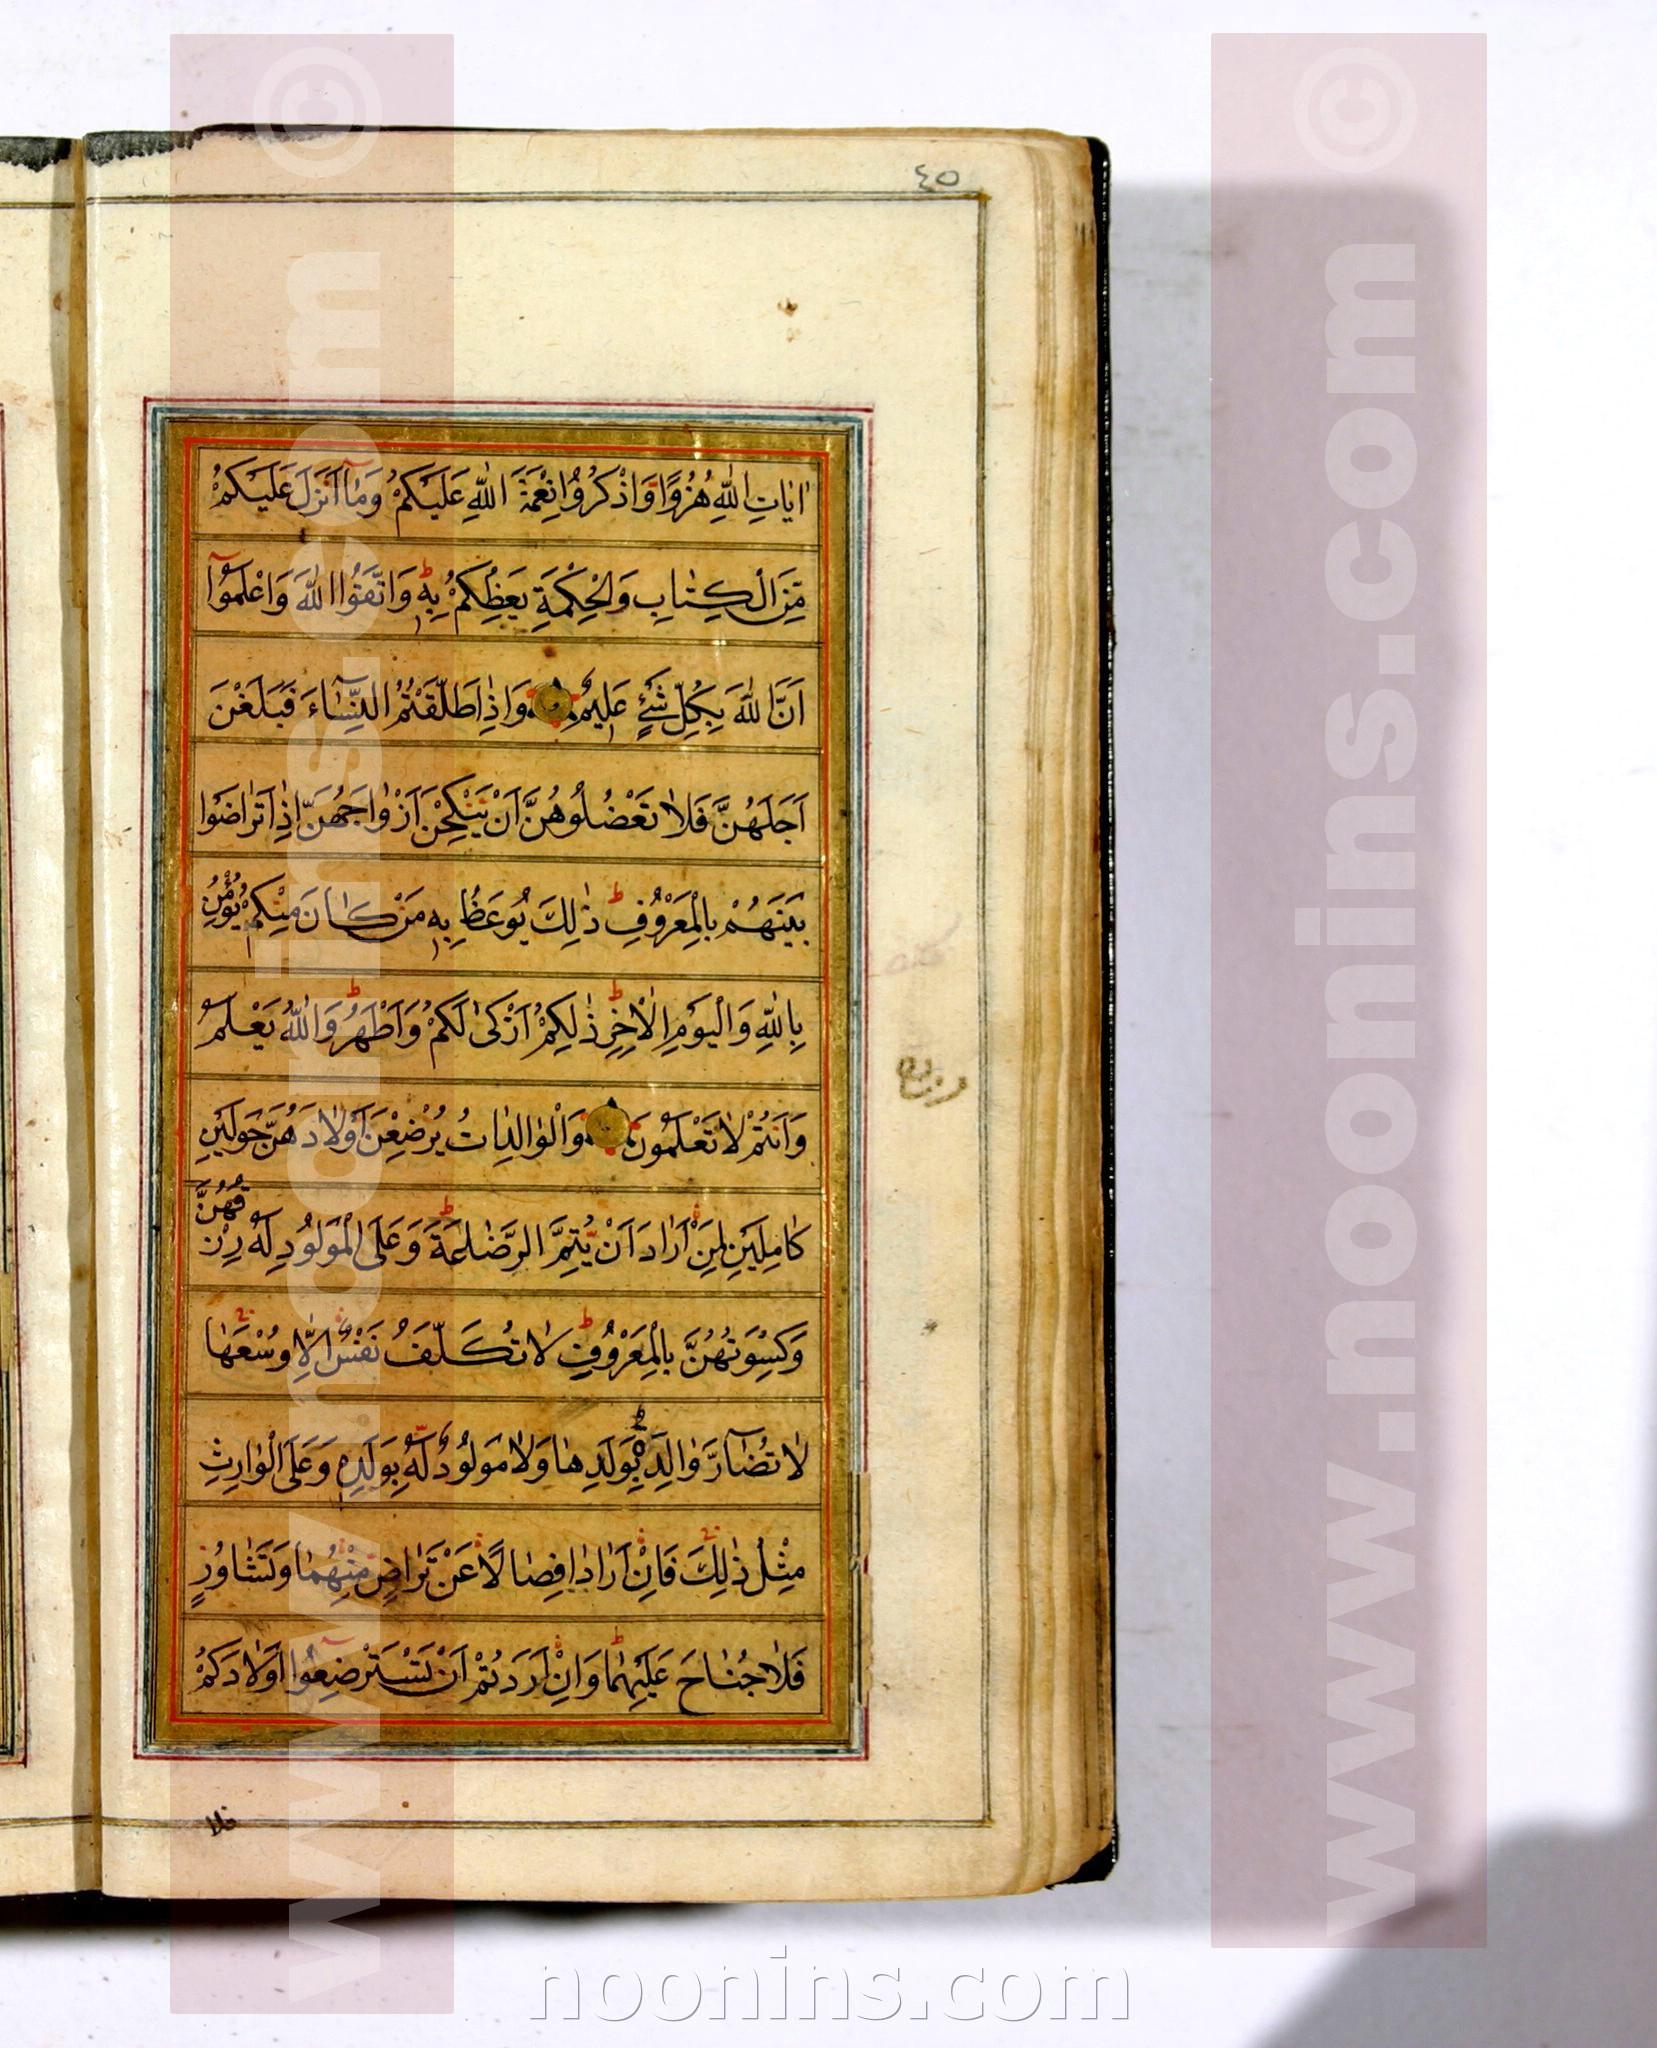 ٤٥
اٰيٰاتِ اللّٰهِ هُزُوًا وَاذْكُرُوا نِعْمَةَ اللّٰهِ عَلَيْكُمْ وَمٰٓا اَنْزَلَ عَلَيْكُمْ
مِّنَ الْكِتٰابِ وَالْحِكْمَةِ يَعِظُكُمْ بِهٖ ط وَاتَّقُوا اللّٰهَ وَاعْلَمُوٓا
اَنَّ اللّٰهَ بِكُلِّ شَيْءٍ عَلِيمٌ وَاِذٰا طَلَّقْتُمُ النِّسٰٓاءَ فَبَلَغْنَ
اَجَلَهُنَّ فَلٰا تَعْضُلُوهُنَّ اَنْ يَنْكِحْنَ اَزْوٰاجَهُنَّ اِذٰا تَرٰاضَوْا
بَيْنَهُمْ بِالْمَعْرُوفِ ط ذٰلِكَ يُوعَظُ بِهٖ مَنْ كٰانَ مِنْكُمْ يُؤْمِنُ
بِاللّٰهِ وَالْيَوْمِ الْاٰخِرِ ط ذٰلِكُمْ اَزْكىٰ لَكُمْ وَاَطْهَرُ ط وَاللّٰهُ يَعْلَمُ
وَاَنْتُمْ لٰا تَعْلَمُونَ وَالْوٰالِدٰاتُ يُرْضِعْنَ اَوْلٰادَهُنَّ حَوْلَيْنِ
كٰامِلَيْنِ لِمَنْ اَرٰادَ اَنْ يُتِمَّ الرَّضٰاعَةَ ط وَعَلَى الْمَوْلُودِ لَهُ رِزْقُهُنَّ
وَكِسْوَتُهُنَّ بِالْمَعْرُوفِ ط لٰا تُكَلَّفُ نَفْسٌ اِلّٰا وُسْعَهٰا
لٰا تُضٰٓارَّ وٰالِدَةٌ بِوَلَدِهٰا وَلٰا مَوْلُودٌ لَهُ بِوَلَدِهٖ وَعَلَى الْوٰارِثِ
مِثْلُ ذٰلِكَ فَاِنْ اَرٰادٰا فِصٰالًا عَنْ تَرٰاضٍ مِنْهُمٰا وَتَشٰاوُرٍ
فَلٰا جُنٰاحَ عَلَيْهِمٰا ط وَاِنْ اَرَدْتُمْ اَنْ تَسْتَرْضِعُوٓا اَوْلٰادَكُمْ
فلا
www.noonins.com ©
www.noonins.com ©
noonins.com